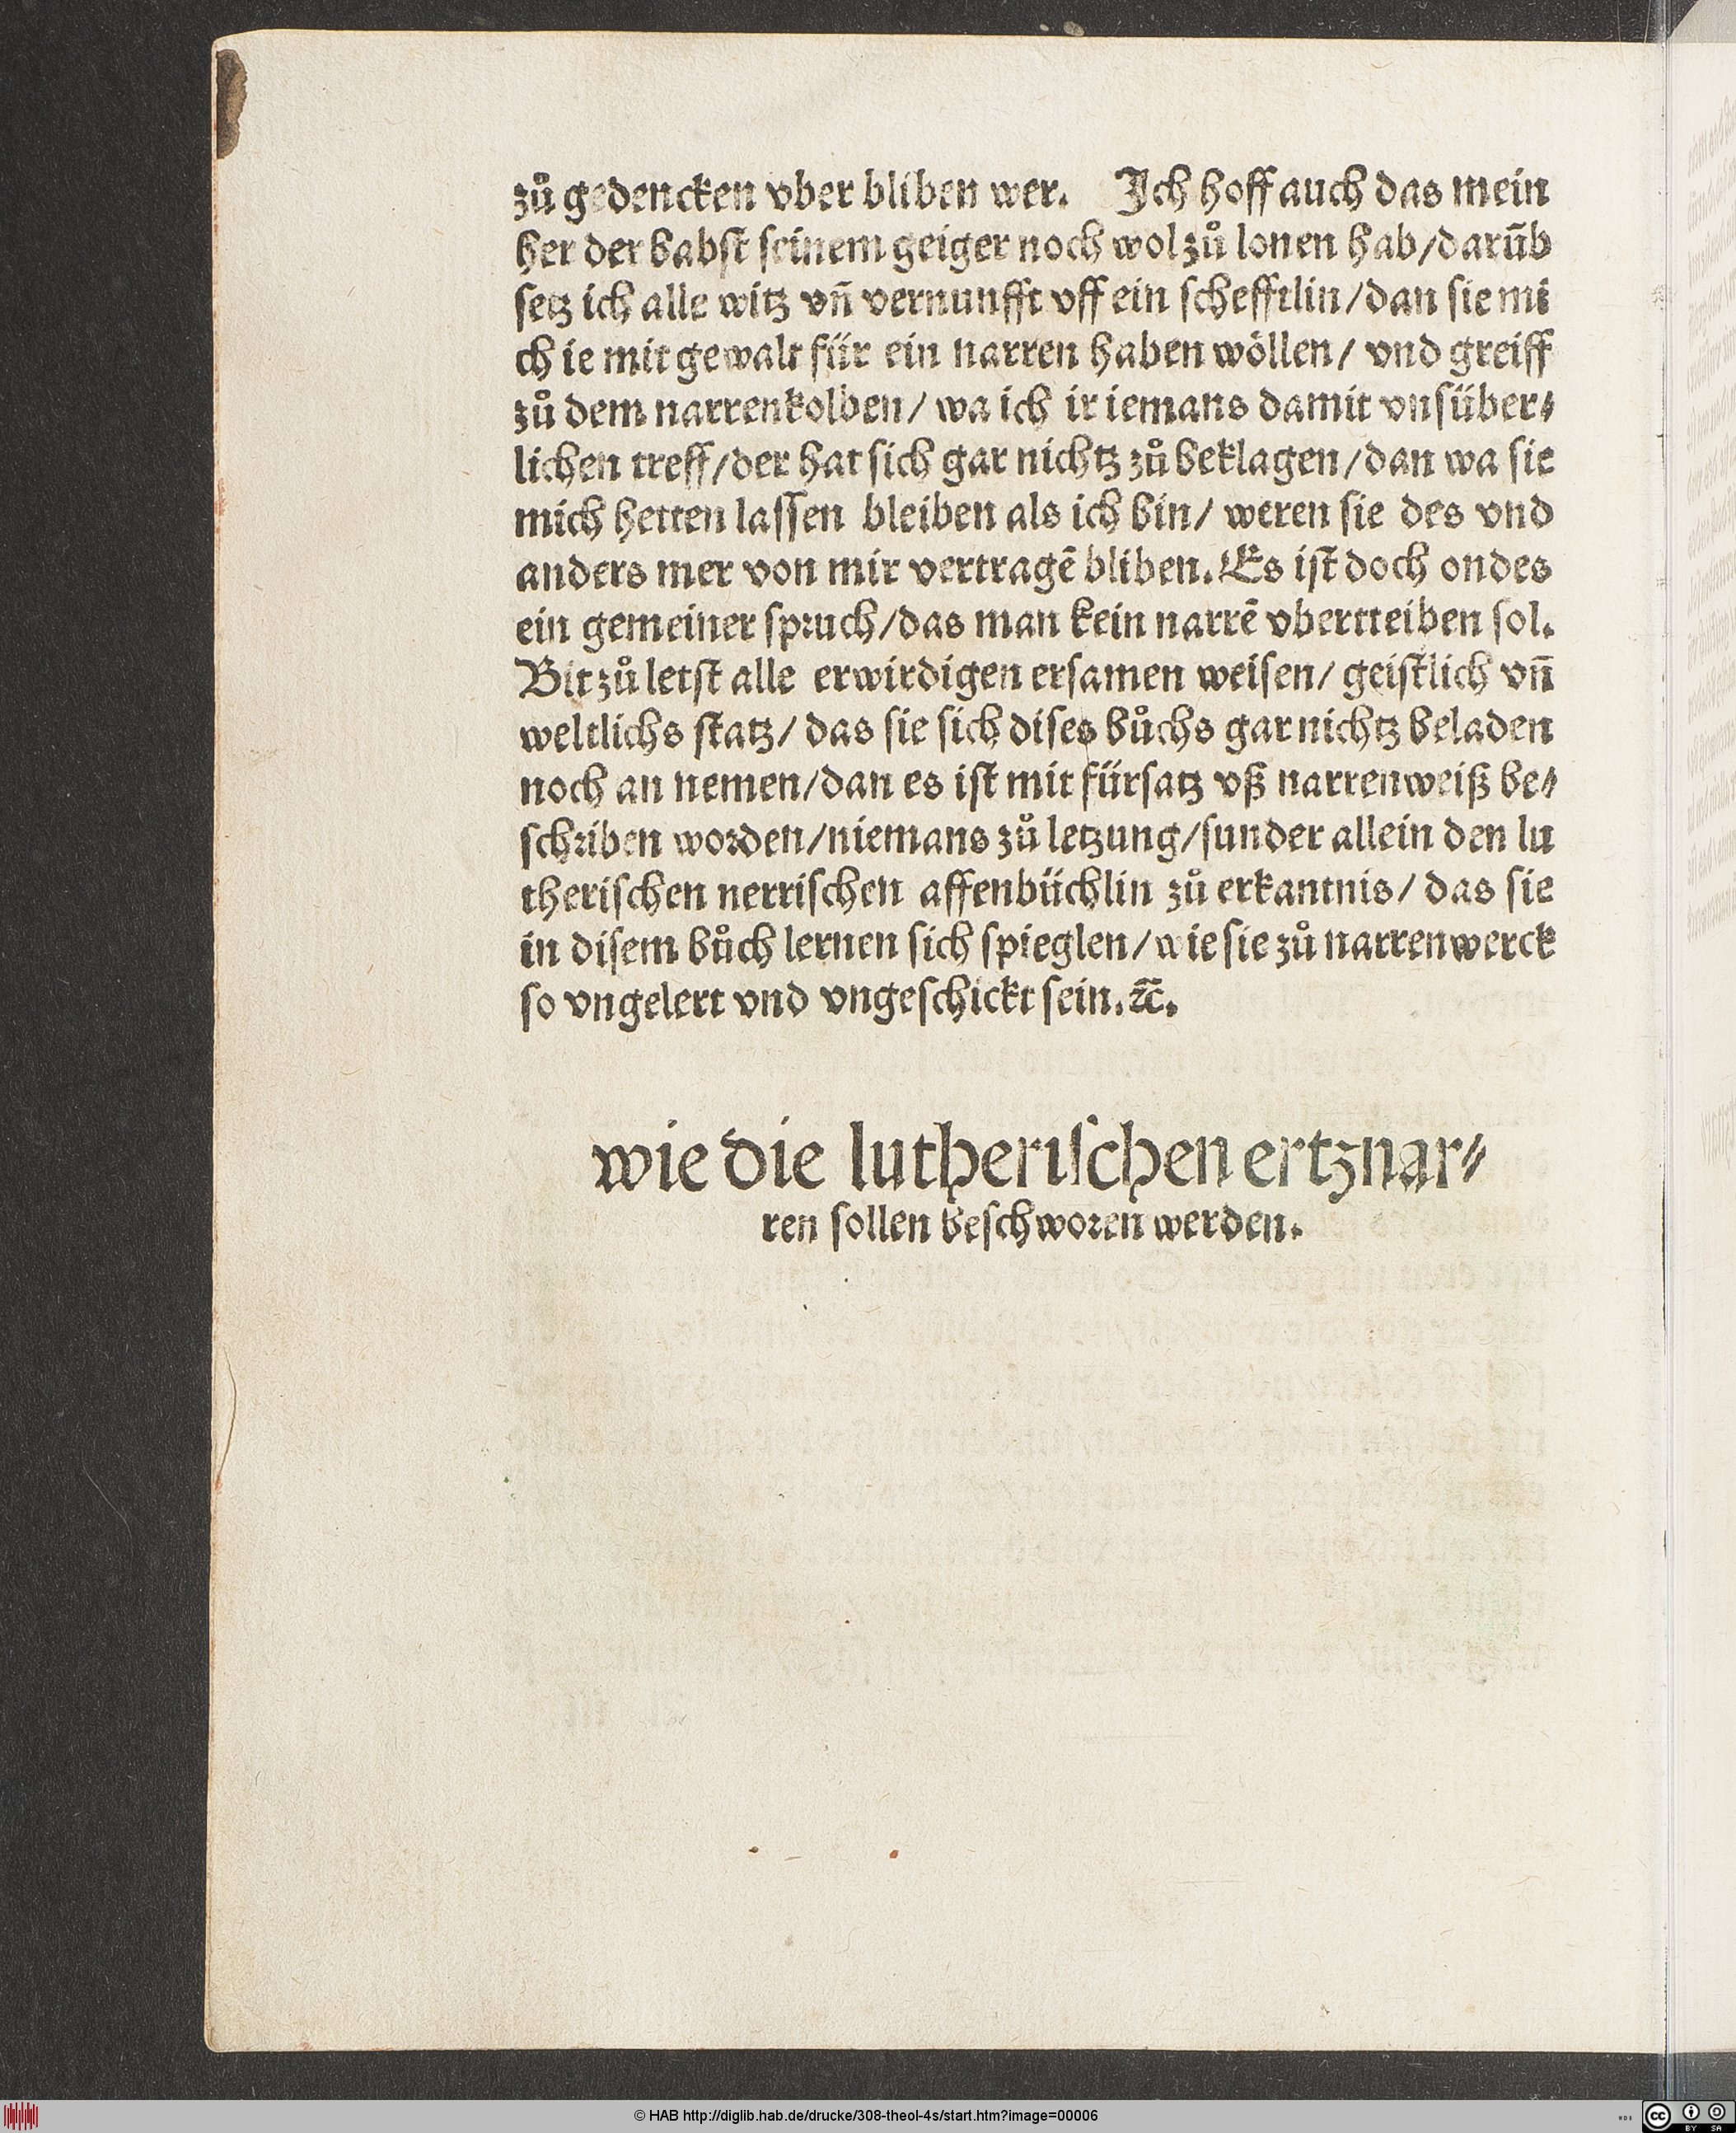 zů gedencken vber bliben wer. Ich hoff auch das mein
her der babst seinem geiger noch wol zů lonen hab/darūb
setz ich alle witz vn̄ vernunfft vff ein schefftlin/dan sie mi
ch ie mit gewalt für ein narren haben wöllen/ vnd greiff
zů dem narrenkolben/ wa ich ir iemans damit vnsüber⸗
lichen treff/der hat sich gar nichtz zů beklagen/dan wa sie
mich hetten lassen bleiben als ich bin/ weren sie des vnd
anders mer von mir vertragē bliben. Es ist doch on des
ein gemeiner spruch/das man kein narrē vbertreiben sol.
Bit zů letst alle erwirdigen ersamen weisen/ geistlich vn̄
weltlichs statz/ das sie sich dises bůchs gar nichtz beladen
noch an nemen/dan es ist mit fürsatz vß narrenweiß be⸗
schriben worden/niemans zů letzung/sunder allein den lu
therischen nerrischen affenbüchlin zů erkantnis/ das sie
in disem bůch lernen sich spieglen/wie sie zů narrenwerck
so vngelert vnd vngeschickt sein.⁊c̄.
wie die lutherischen ertznar⸗
ren sollen beschworen werden.
© HAB http://diglib.hab.de/drucke/308-theol-4s/start.htm?image=00006
cc BY SA